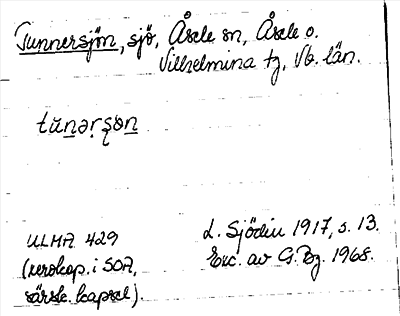 Tunnersjön, sjö, Åsele sn, Åsele o.
Vilhelmina tg, Vb. län.
tu̇nərsön
ULMA 429
(xerokop. i SOA,
särsk. kapsel).
L. Sjödin 1917, s. 13.
Exc. av G. Bg. 1968.